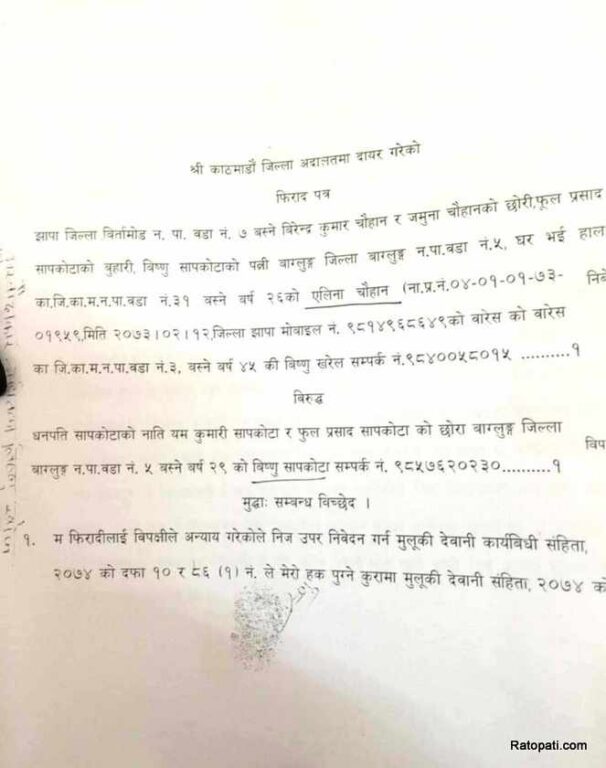 श्री काठमाडौं जिल्ला अदालतमा दायर गरेको
फिराद पत्र
झापा जिल्ला विर्तामोड न. पा. वडा नं. ७ बस्ने बिरेन्द्र कुमार चौहान र जमुना चौहानको छोरी,फूल प्रसाद
सापकोटाको बुहारी, विष्णु सापकोटाको पत्नी बाग्लुङ्ग जिल्ला बाग्लुङ्ग न.पा.वडा नं.५, घर भई हाल
का.जि.का.म.न.पा.वडा नं.३१ बस्ने वर्ष २६को एलिना चौहान (ना.प्र.नं.०४-०१-०१-७३-
निवे
०१९५९,मिति २०७३।०२।१२,जिल्ला झापा मोवाइल नं. ९८१४९६८६४९को वारेस को वारेस
का जि.का.म.न.पा.वडा नं.३, बस्ने वर्ष ४५ की विष्णु खरेल सम्पर्क नं.९८४००५८०१५ ..........१
बिरुद्ध
धनपति सापकोटाको नाति यम कुमारी सापकोटा र फुल प्रसाद सापकोटा को छोरा बाग्लुङ्ग जिल्ला
विप
बाग्लुङ्ग न.पा.वडा नं. ५ बस्ने वर्ष २९ को बिष्णु सापकोटा सम्पर्क नं. ९८५७६२०२३०..........१
मुद्धाः सम्बन्ध विच्छेद ।
१. म फिरादीलाई बिपक्षीले अन्याय गरेकोले निज उपर निबेदन गर्न मुलूकी देवानी कार्यबिधी संहिता,
२०७४ को दफा १० र ८६ (१) नं. ले मेरो हक पुग्ने कुरामा मुलूकी देवानी संहिता, २०७४ को
Ratopati.com